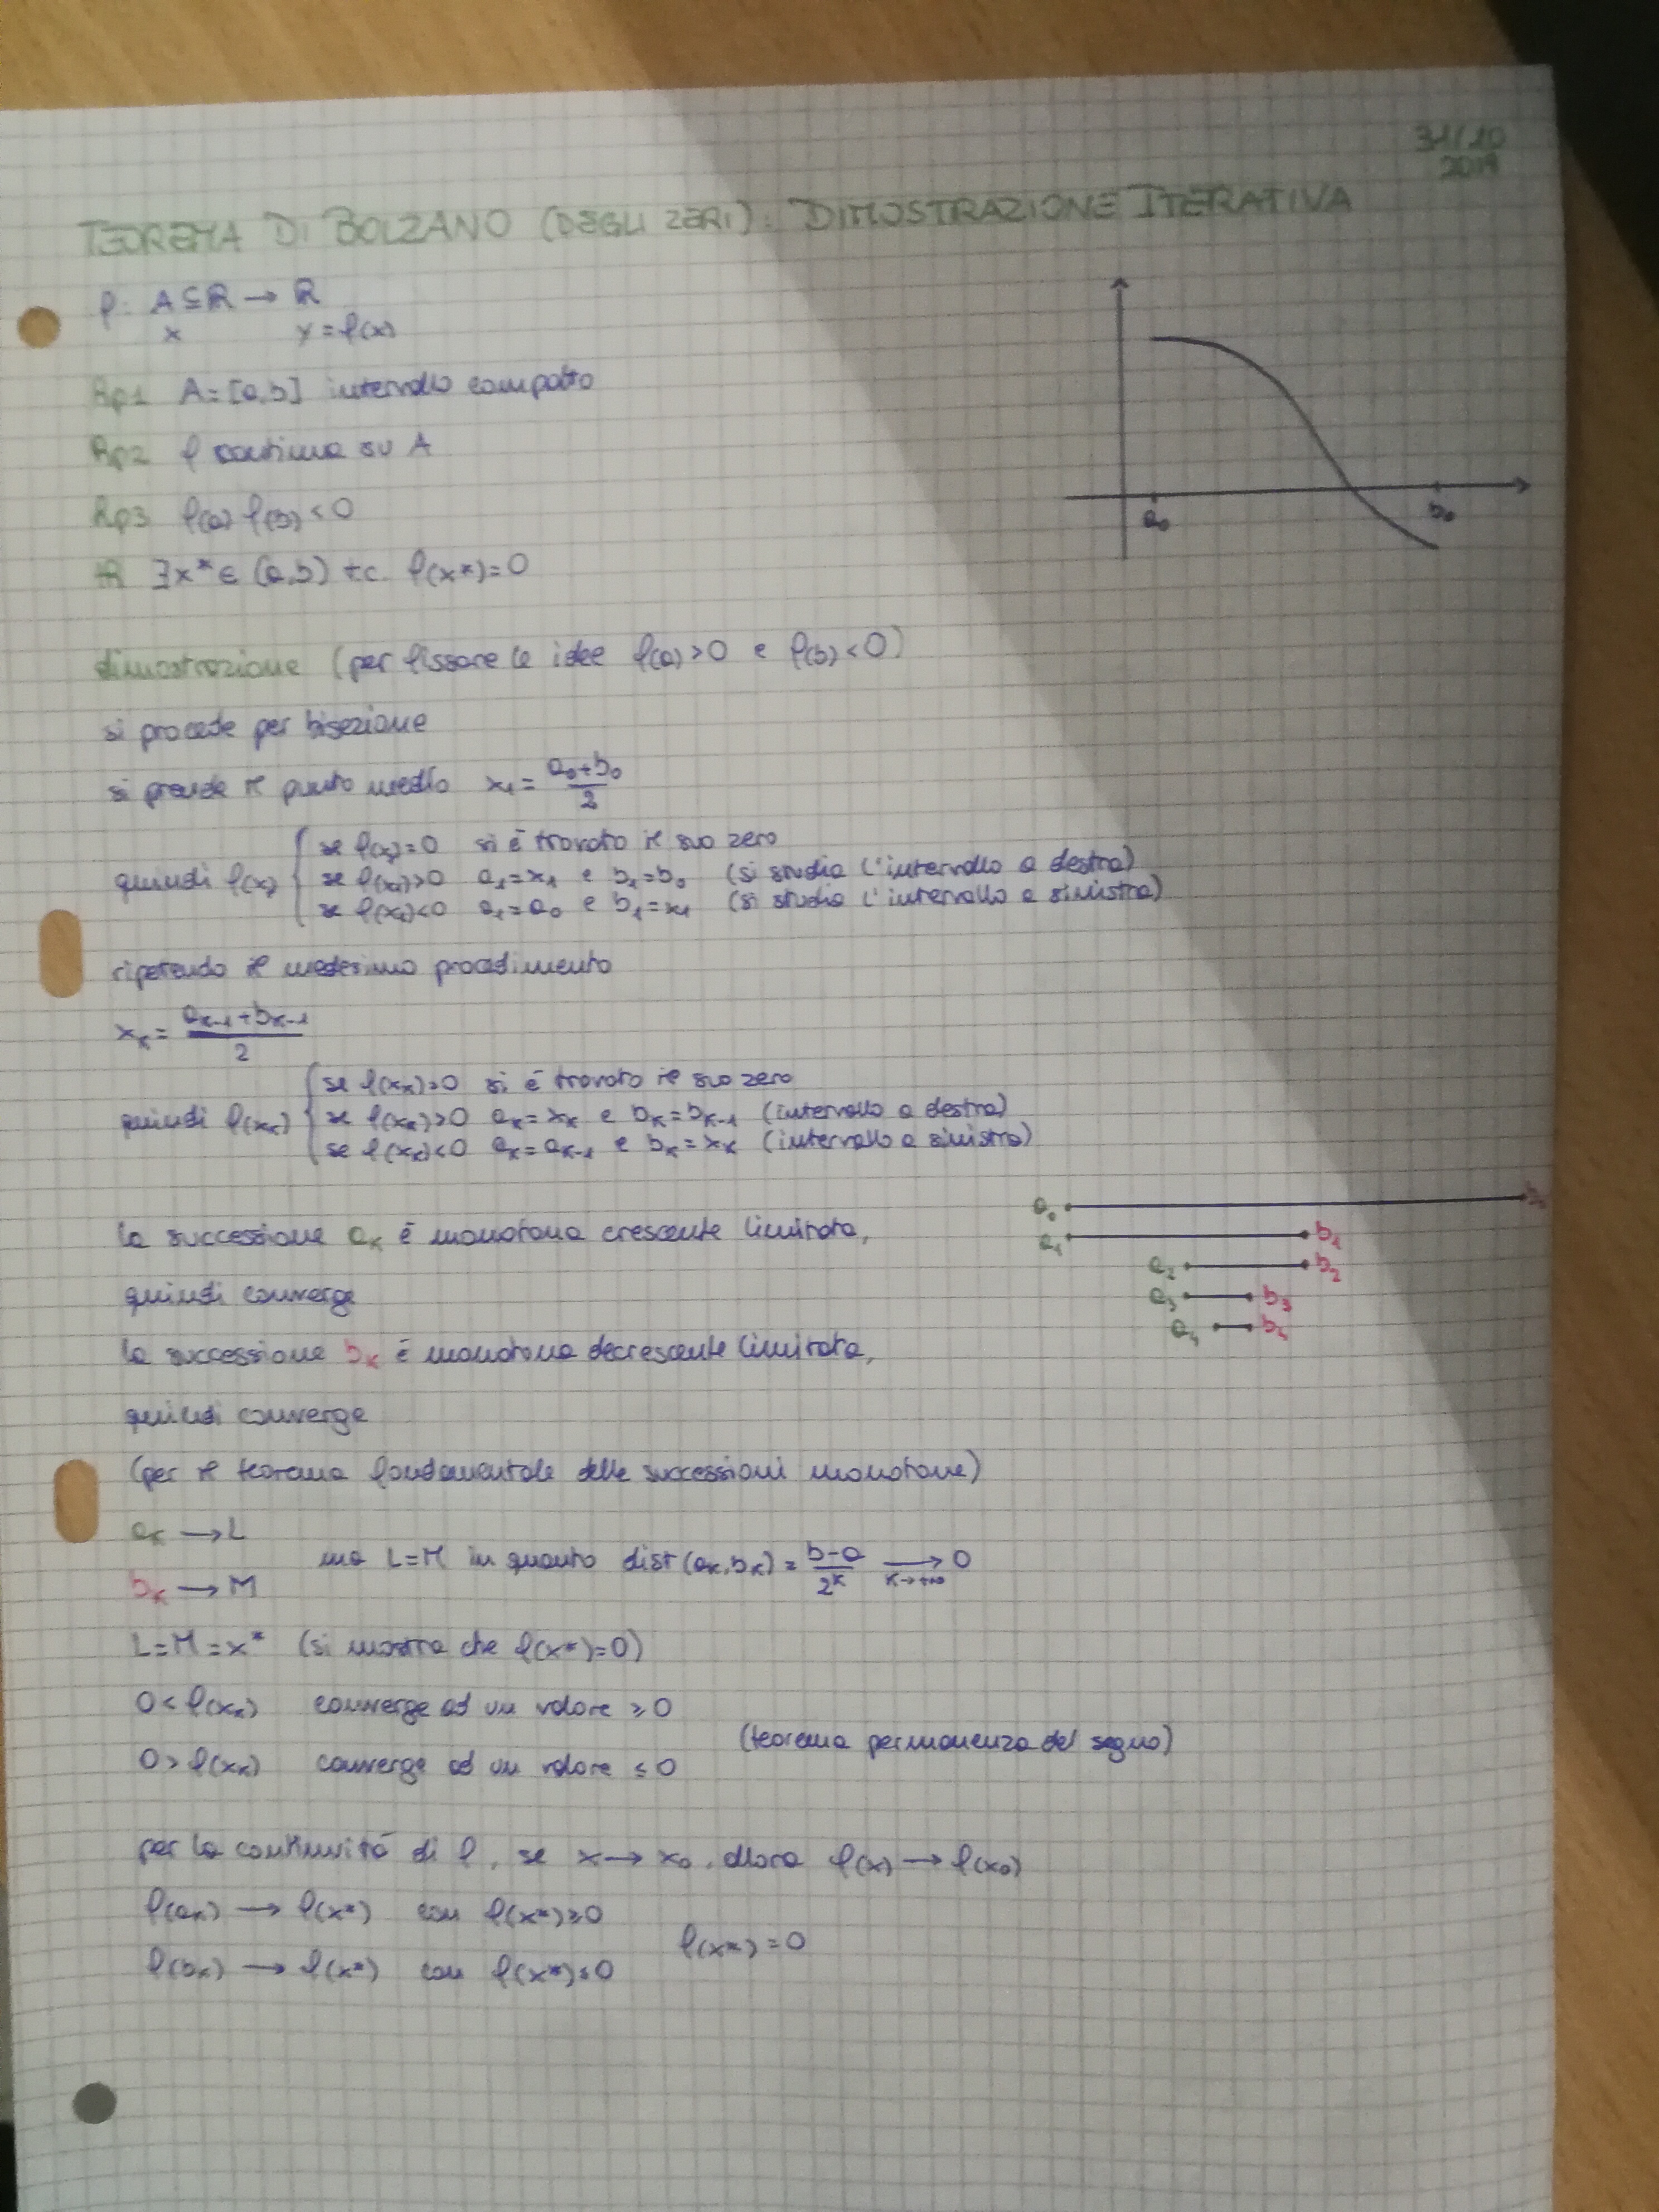 31/10
2019
TEOREMA DI BOLZANO (DEGLI ZERI): DIMOSTRAZIONE ITERATIVA
f: A⊆ℝ → ℝ
x y=f(x)
Hp1 A=[a,b] intervallo compatto
Hp2 f continua su A
Hp3 f(a) f(b)<0
th ∃x*∈(a,b) t.c. f(x*)=0
a₀ b₀
dimostrazione (per fissare le idee f(a)>0 e f(b)<0)
si procede per bisezione
si prende il punto medio x₁= (a₀+b₀)/2
quindi f(x₁) { se f(x₁)=0 si è trovato il suo zero
se f(x₁)>0 a₁=x₁ e b₁=b₀ (si studia l'intervallo a destra)
se f(x₁)<0 a₁=a₀ e b₁=x₁ (si studia l'intervallo a sinistra)
ripetendo il medesimo procedimento
xₖ= (aₖ₋₁+bₖ₋₁)/2
quindi f(xₖ) { se f(xₖ)=0 si è trovato il suo zero
se f(xₖ)>0 aₖ=xₖ e bₖ=bₖ₋₁ (intervallo a destra)
se f(xₖ)<0 aₖ=aₖ₋₁ e bₖ=xₖ (intervallo a sinistra)
a₀ b₀
a₁ b₁
a₂ b₂
a₃ b₃
a₄ b₄
la successione aₖ è monotona crescente limitata,
quindi converge
la successione bₖ è monotona decrescente limitata,
quindi converge
(per il teorema fondamentale delle successioni monotone)
aₖ → L
ma L=M in quanto dist(aₖ,bₖ)= (b-a)/2ᵏ → 0 k→+∞
bₖ → M
L=M=x* (si mostra che f(x*)=0)
0<f(xₖ) converge ad un valore ≥0
(teorema permanenza del segno)
0>f(xₖ) converge ad un valore ≤0
per la continuità di f, se x→x₀, allora f(x)→f(x₀)
f(aₖ) → f(x*) con f(x*)≥0
f(x*)=0
f(bₖ) → f(x*) con f(x*)≤0